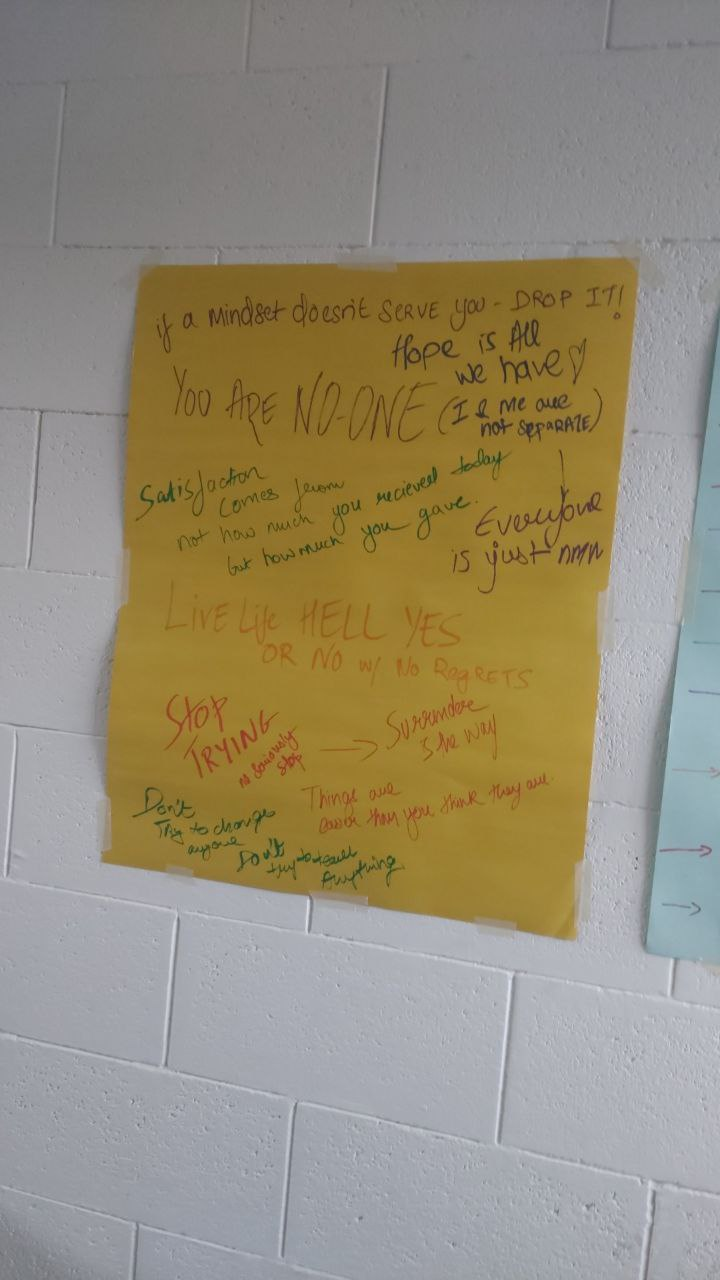 if a Mindset doesn't SERVE you - DROP IT!
Hope is All
we have ♡
YOU ARE NO-ONE
(I & me are
not SepaRATE)
Satisfaction
comes from
not how much you recieved today
but how much you gave.
Everyone
is just
Live Life HELL YES
OR NO w/ No RegRETS
STOP
TRYING
no seriously
stop
→ Surrender
is the way
Things are
easier than you think they are.
Don't
Try to change
anyone
Don't
try to teach
Anything